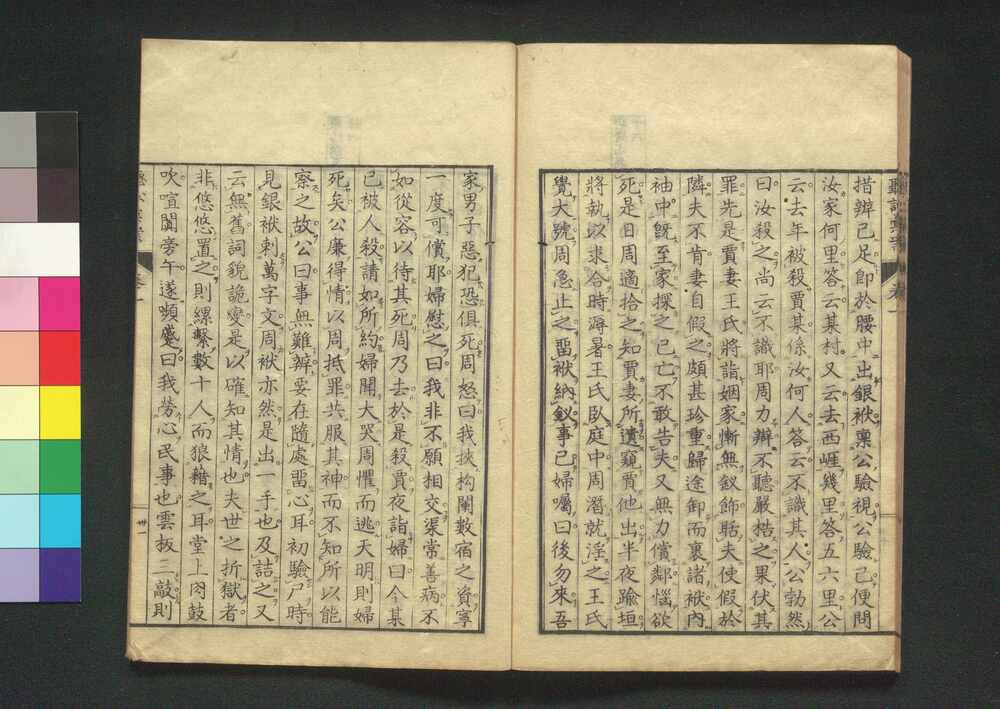 措辦已足即於腰中出銀袱稟公驗視公驗已便問
汝家何里答云某村又云去西崕幾里答五六里公
云去年被殺賈某係汝何人答云不識其人公勃然
曰汝殺之尚云不識耶周力辯不聽嚴梏之果伏其
罪先是賈妻王氏將詣姻家慚無釵飾聒夫使假於
隣夫不肯妻自假之頗甚珍重歸途卸而裹諸袱內
袖中既至家探之已亡不敢告夫又無力償鄰惱欲
死是日周適拾之知賈妻所遺窺賈他出半夜踰垣
將執以求合時溽暑王氏臥庭中周潛就淫之王氏
覺大號周急止之畱袱納釵事已婦囑曰後勿來吾
家男子惡犯恐俱死周怒曰我挾杓闌數宿之資寧
一度可償耶婦慰之曰我非不願相交渠常善病不
如從容以待其死周乃去於是殺賈夜詣婦曰今某
已被人殺請如所約婦聞大哭周懼而逃天明則婦
死矣公廉得情以周抵罪共服其神而不知所以能
察之故公曰事無難辨要在隨處畱心耳初驗尸時
見銀袱刺萬字文周袱亦然是出一手也及詰之又
云無舊詞貌詭變是以確知其情也夫世之折獄者
非悠悠置之則縲繫數十人而狼藉之耳堂上肉鼓
吹喧闐旁午遂嚬蹙曰我勞心民事也雲板三敲則
卅一